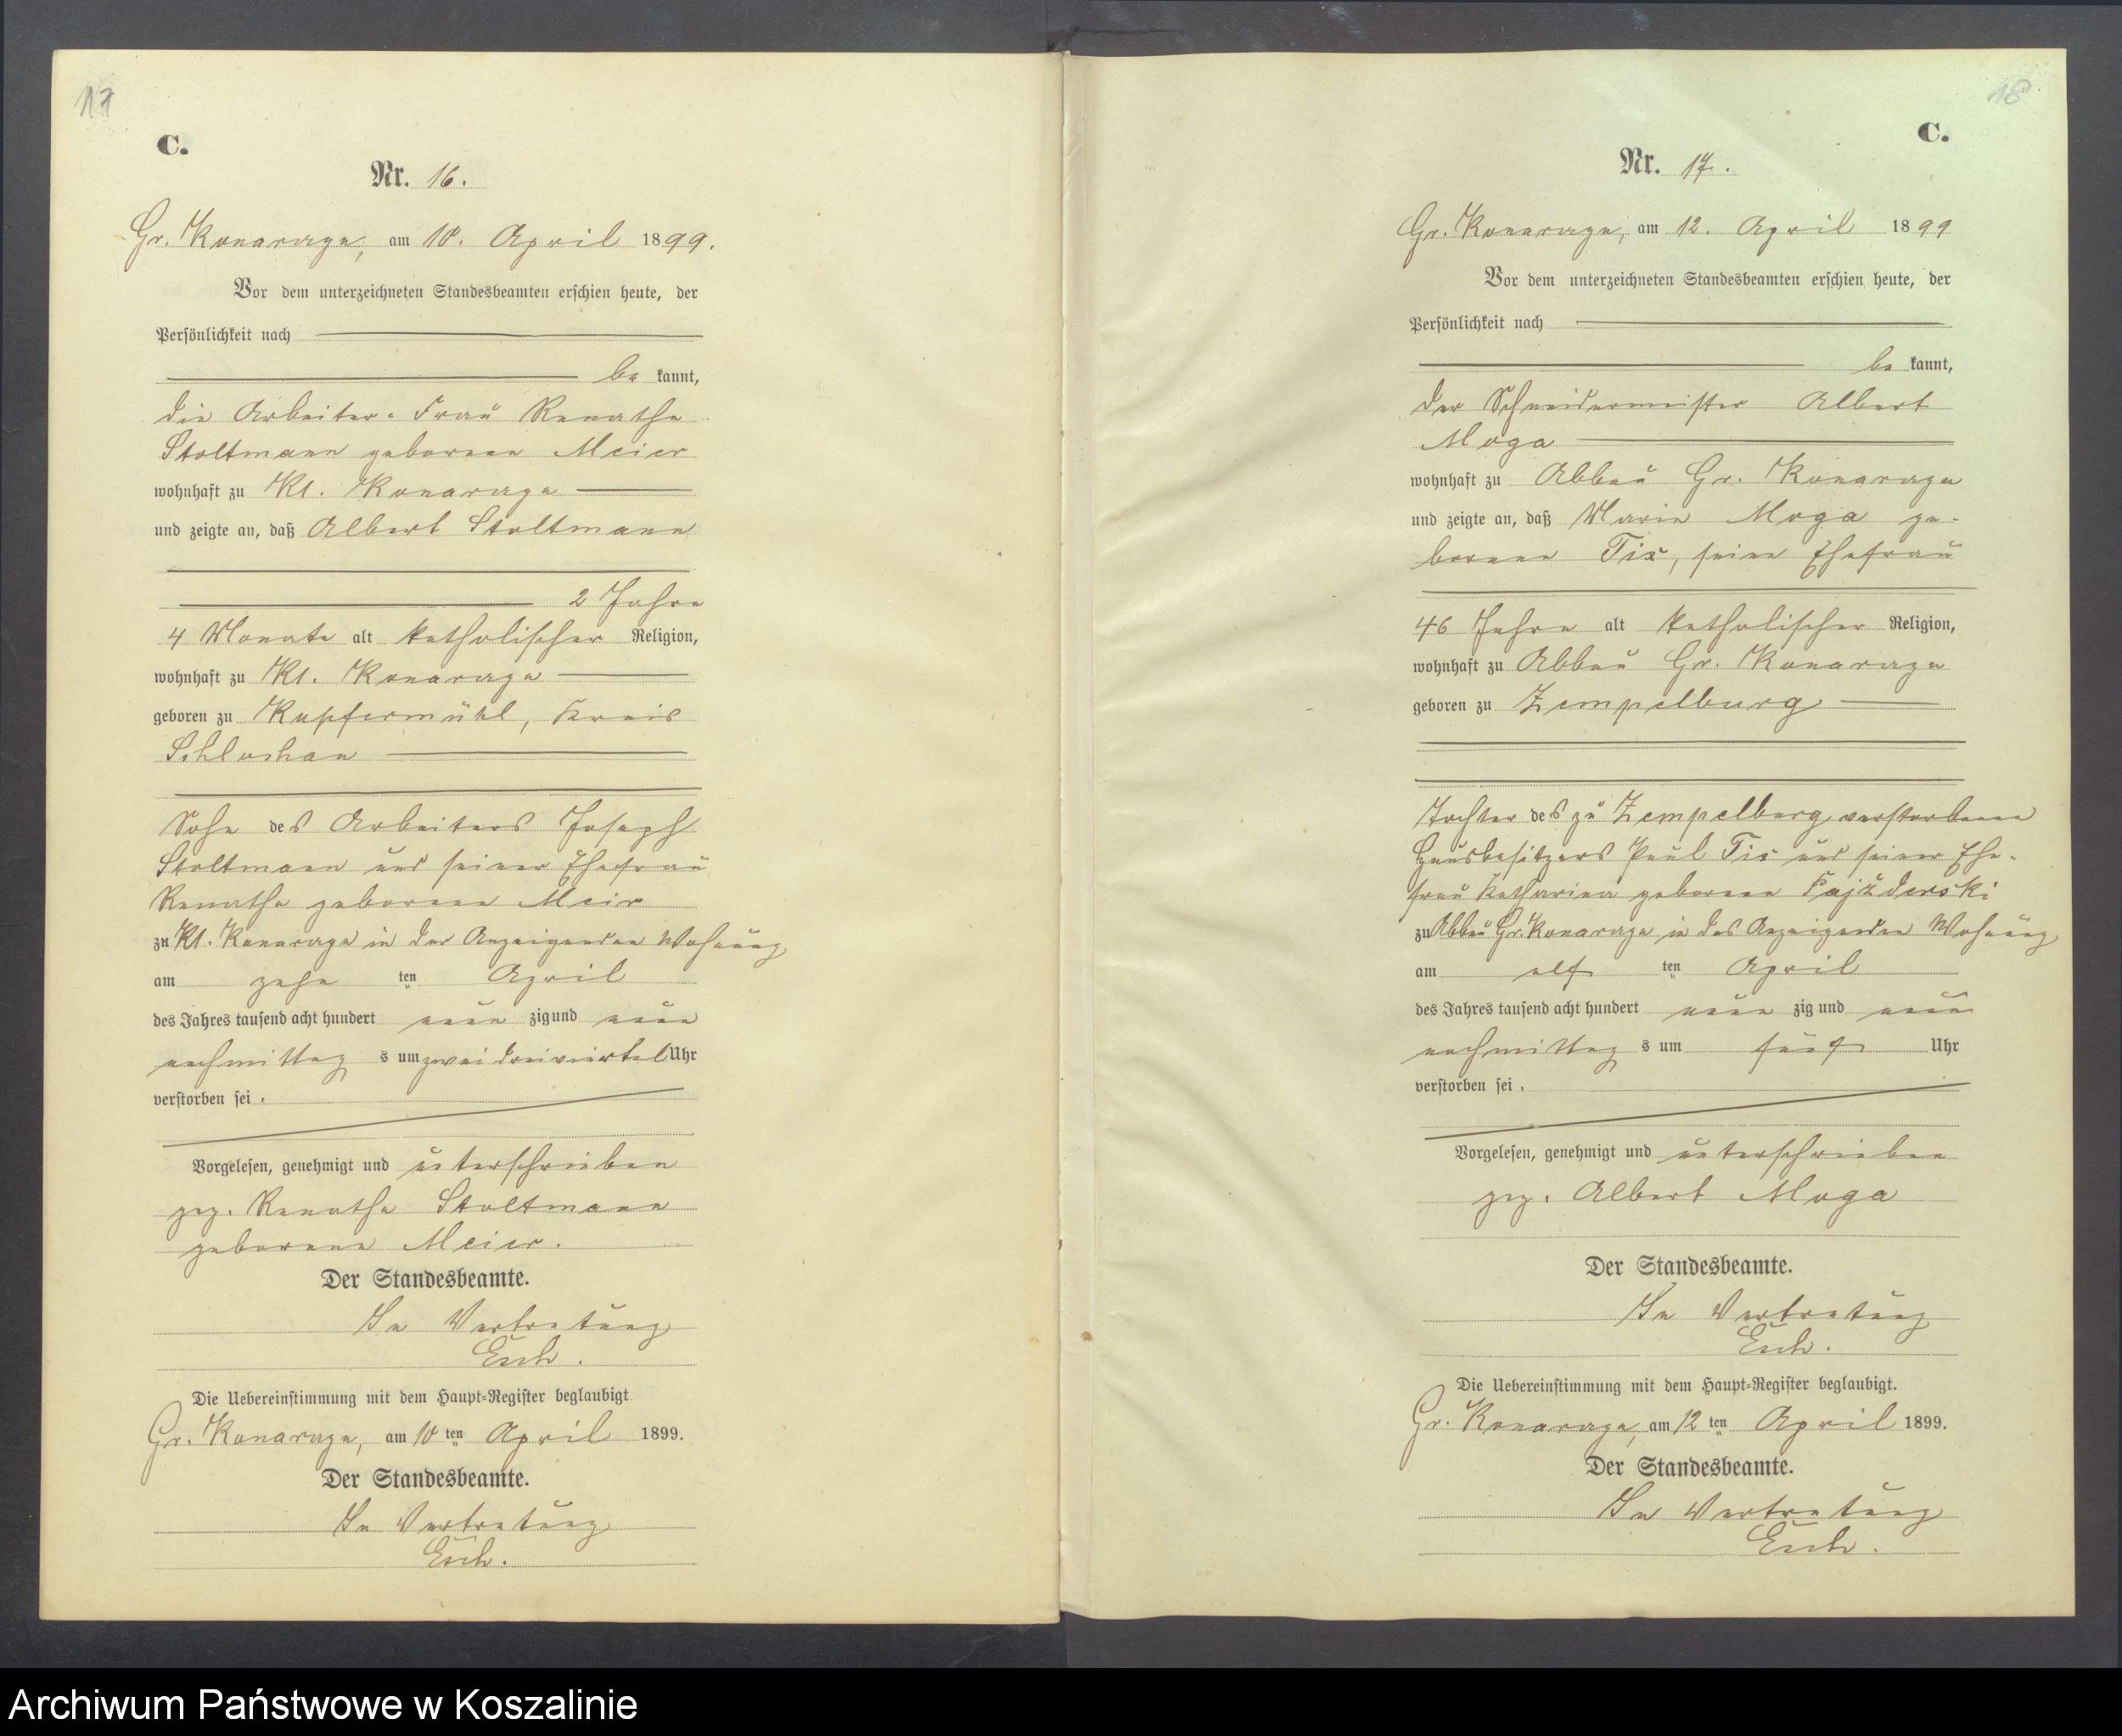 17
C.
Nr. 16.
Gr. Konarzyn, am 10. April 1899.
Vor dem unterzeichneten Standesbeamten erschien heute, der
Persönlichkeit nach
be kannt,
die Arbeiter-Frau Renathe
Stoltmann geborene Meier
wohnhaft zu Kl. Konarzyn
und zeigte an, daß Albert Stoltmann
2 Jahre
4 Monate alt katholischer Religion,
wohnhaft zu Kl. Konarzyn
geboren zu Kupfermühl, Kreis
Schlochau
Sohn des Arbeiters Joseph
Stoltmann und seiner Ehefrau
Renathe geborene Meier
zu Kl. Konarzyn in der Anzeigenden Wohnung
am zehn ten April
des Jahres tausend acht hundert neun zig und neun
nachmittag s um zwei dreiviertel Uhr
verstorben sei.
Vorgelesen, genehmigt und unterschrieben
gez. Renathe Stoltmann
geborene Meier.
Der Standesbeamte.
In Vertretung
Esch.
Die Uebereinstimmung mit dem Haupt-Register beglaubigt
Gr. Konarzyn, am 10 ten April 1899.
Der Standesbeamte.
In Vertretung
Esch.
18
C.
Nr. 17.
Gr. Konarzyn, am 12. April 1899
Vor dem unterzeichneten Standesbeamten erschien heute, der
Persönlichkeit nach
be kannt,
der Schneidermeister Albert
Moga
wohnhaft zu Abbau Gr. Konarzyn
und zeigte an, daß Marie Moga ge-
borene Tix, seine Ehefrau
46 Jahre alt katholischer Religion,
wohnhaft zu Abbau Gr. Konarzyn
geboren zu Zempelburg
Tochter des zu Zempelburg verstorbenen
Hausbesitzers Paul Tix und seiner Ehe-
frau Katharina geborene
zu Abbau Gr. Konarzyn in des Anzeigenden Wohnung
am elf ten April
des Jahres tausend acht hundert neun zig und neun
nachmittag s um fünf Uhr
verstorben sei.
Vorgelesen, genehmigt und unterschrieben
gez. Albert Moga
Der Standesbeamte.
In Vertretung
Esch.
Die Uebereinstimmung mit dem Haupt-Register beglaubigt.
Gr. Konarzyn, am 12 ten April 1899.
Der Standesbeamte.
In Vertretung
Esch.
Archiwum Państwowe w Koszalinie